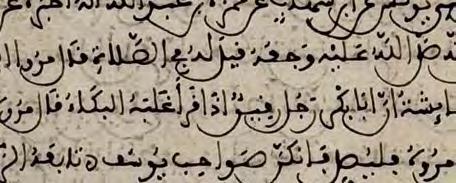 يونس عن ابن شهاب عن حمزة بن عبد الله انه اخبره عن
الله عَلَيْهِ وَجَعُهُ قيلَ لَهُ في الصَّلَاةِ فَقال مروا ا
عايشةُ انّ ابَا بَكرٍ رَجُل رقيقٌ اذا قرأ غَلَبَهُ البُكَاءُ قال مروه
مروهُ فليُصلِ فإنكنّ صواحب يوسف تابعَهُ الز